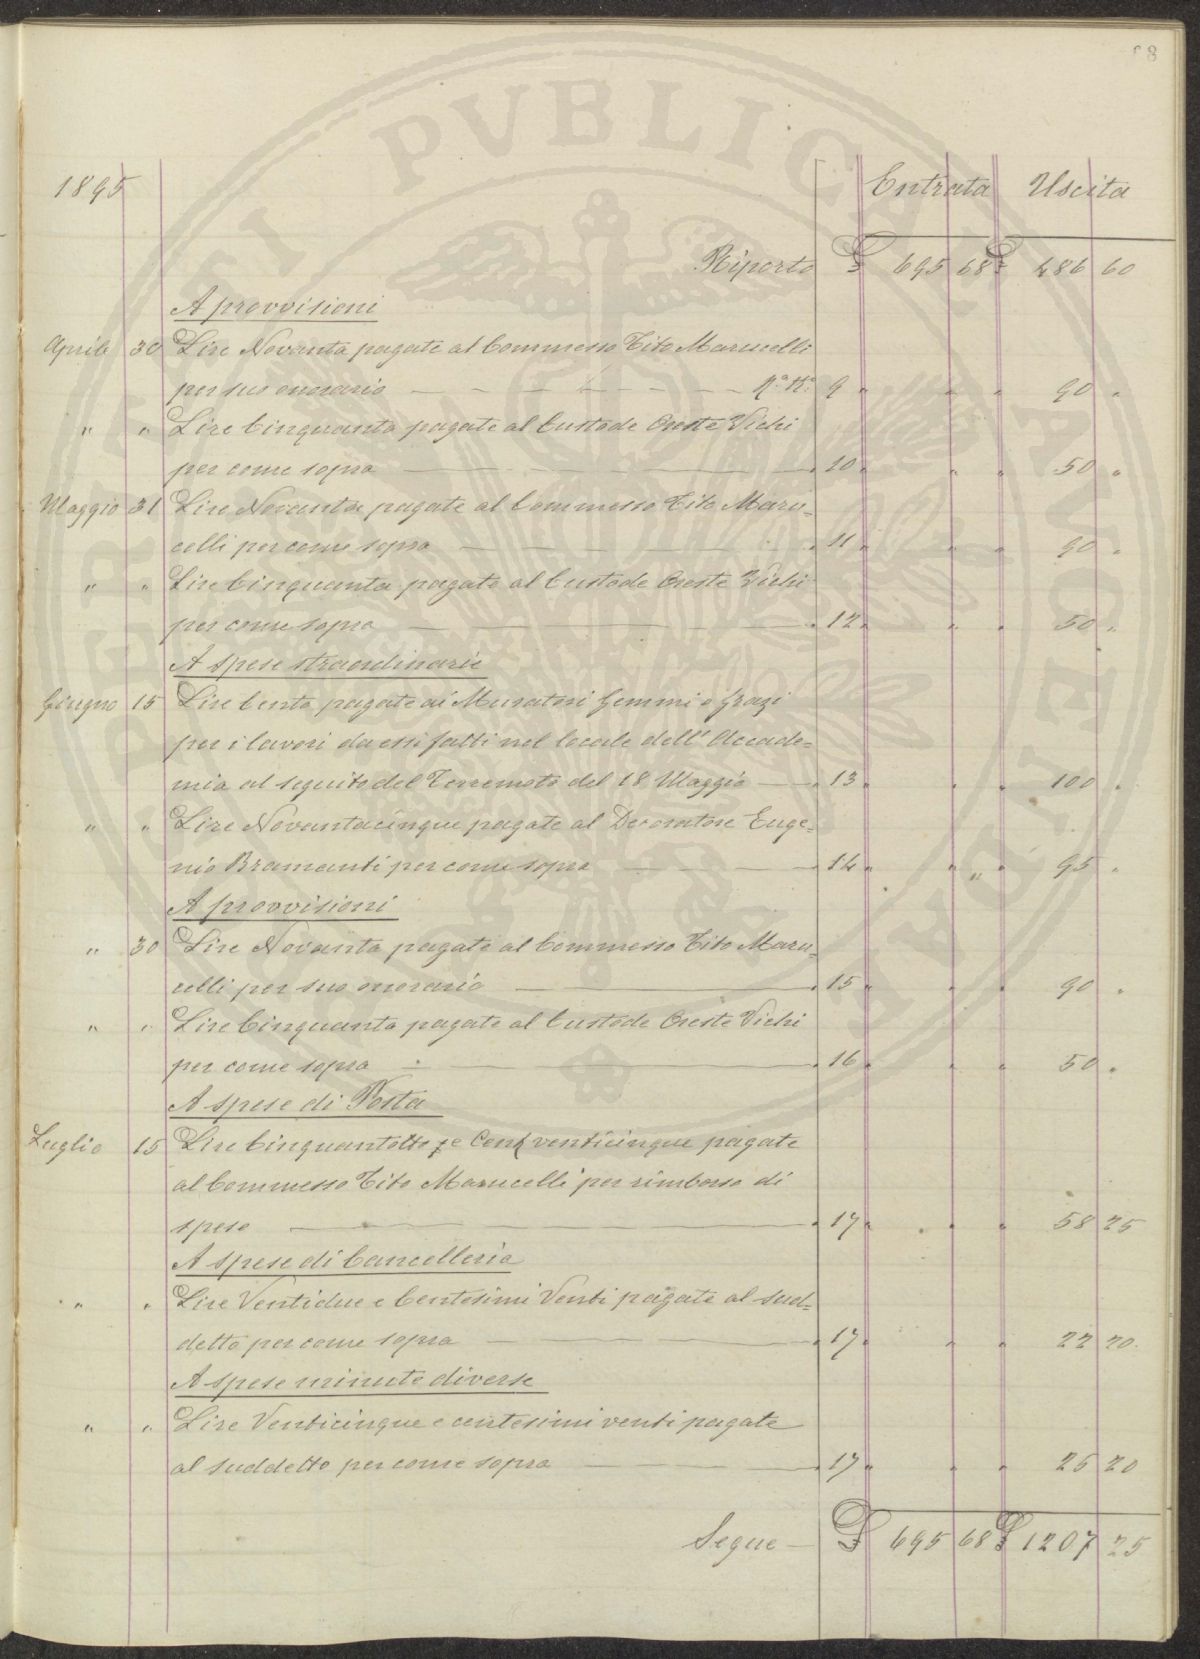 68
1895 Entrata Uscita
Riporto £ 695 68 £ 486 60
A provvisioni
Aprile 30 Lire Novanta pagate al Commesso Tito Marucelli
per suo onorario — R.a N.o 9 " " " 90 "
" " Lire Cinquanta pagate al Custode Oreste Vichi
per come sopra — " 10 " " " 50 "
Maggio 31 Lire Novanta pagate al Commesso Tito Maru=
celli per come sopra — " 11 " " " 90 "
" " Lire Cinquanta pagate al Custode Oreste Vichi
per come sopra — " 12 " " " 50 "
A spese straordinarie
Giugno 15 Lire Cento pagate ai Muratori Gemmi e Grazi
per i lavori da essi fatti nel locale dell'Accade=
mia al seguito del Terremoto del 18 Maggio — " 13 " " " 100 "
" " Lire Novantacinque pagate al Decoratore Euge=
nio Bramanti per come sopra — " 14 " " " 95 "
A provvisioni
" 30 Lire Novanta pagate al Commesso Tito Maru=
celli per suo onorario — " 15 " " " 90 "
" " Lire Cinquanta pagate al Custode Oreste Vichi
per come sopra — " 16 " " " 50 "
A spese di Posta
Luglio 15 Lire Cinquantotto e Cent venticinque pagate
al Commesso Tito Marucelli per rimborso di
spese — " 17 " " " 58 25
A spese di Cancelleria
" " Lire Ventidue e Centesimi Venti pagate al sud=
detto per come sopra — " 17 " " " 22 20
A spese minute diverse
" " Lire Venticinque e centesimi venti pagate
al suddetto per come sopra — " 17 " " " 25 20
Segue — £ 695 68 £ 1207 25